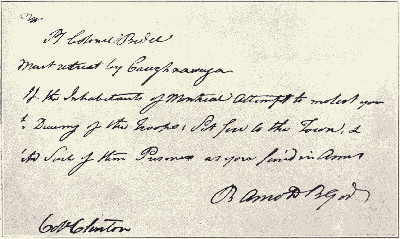 Colonel Bedel
Must retreat by Caughnawaga
If the Inhabitants of Montreal Attempt to molest you
any of the Troops, Set fire to the Town, &
Such of them Prisoners as you find in Arms
B Arnold B Gen
Clinton